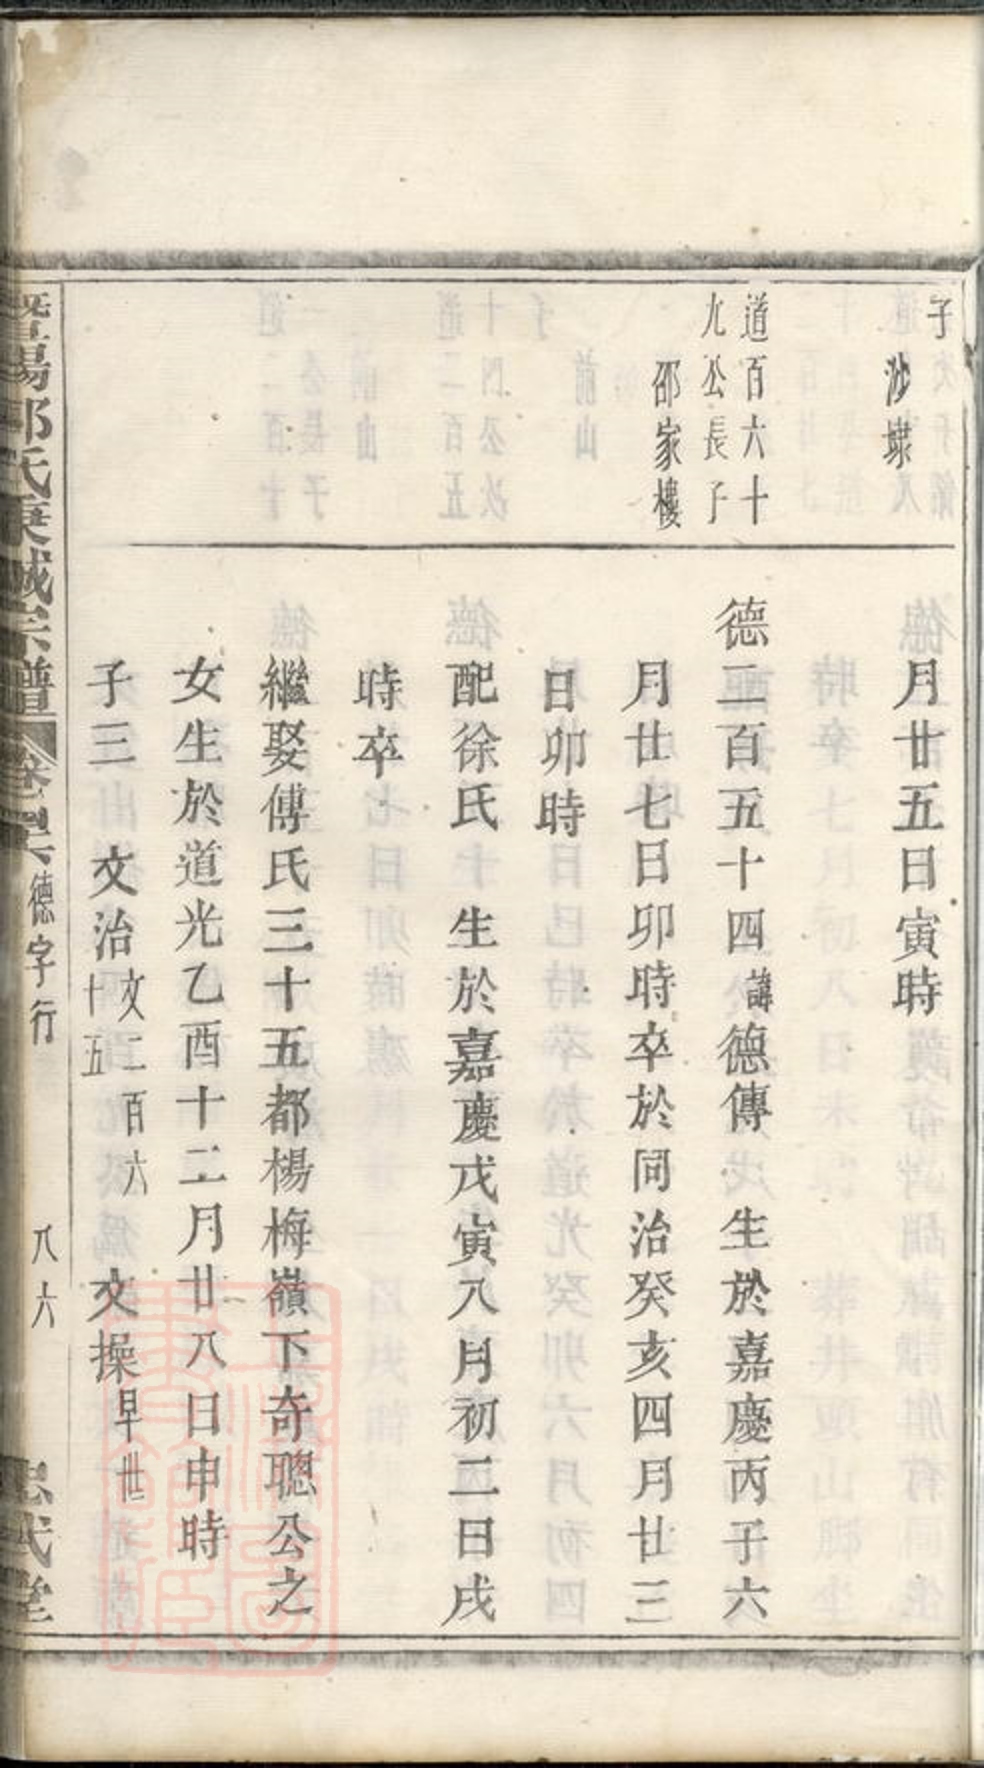 子
沙埭
月廿五日寅時
道百六十
九公長子
邵家樓
德二百五十四諱德傳 生於嘉慶丙子六
月廿七日卯時卒於同治癸亥四月廿三
日卯時
配徐氏 生於嘉慶戊寅八月初二日戌
時卒
繼娶傅氏三十五都楊梅嶺下奇聰公之
女生於道光乙酉十二月廿八日申時
子三 文治文二百六十五 文操早世
暨陽邵氏 宗譜 卷 德字行 八六